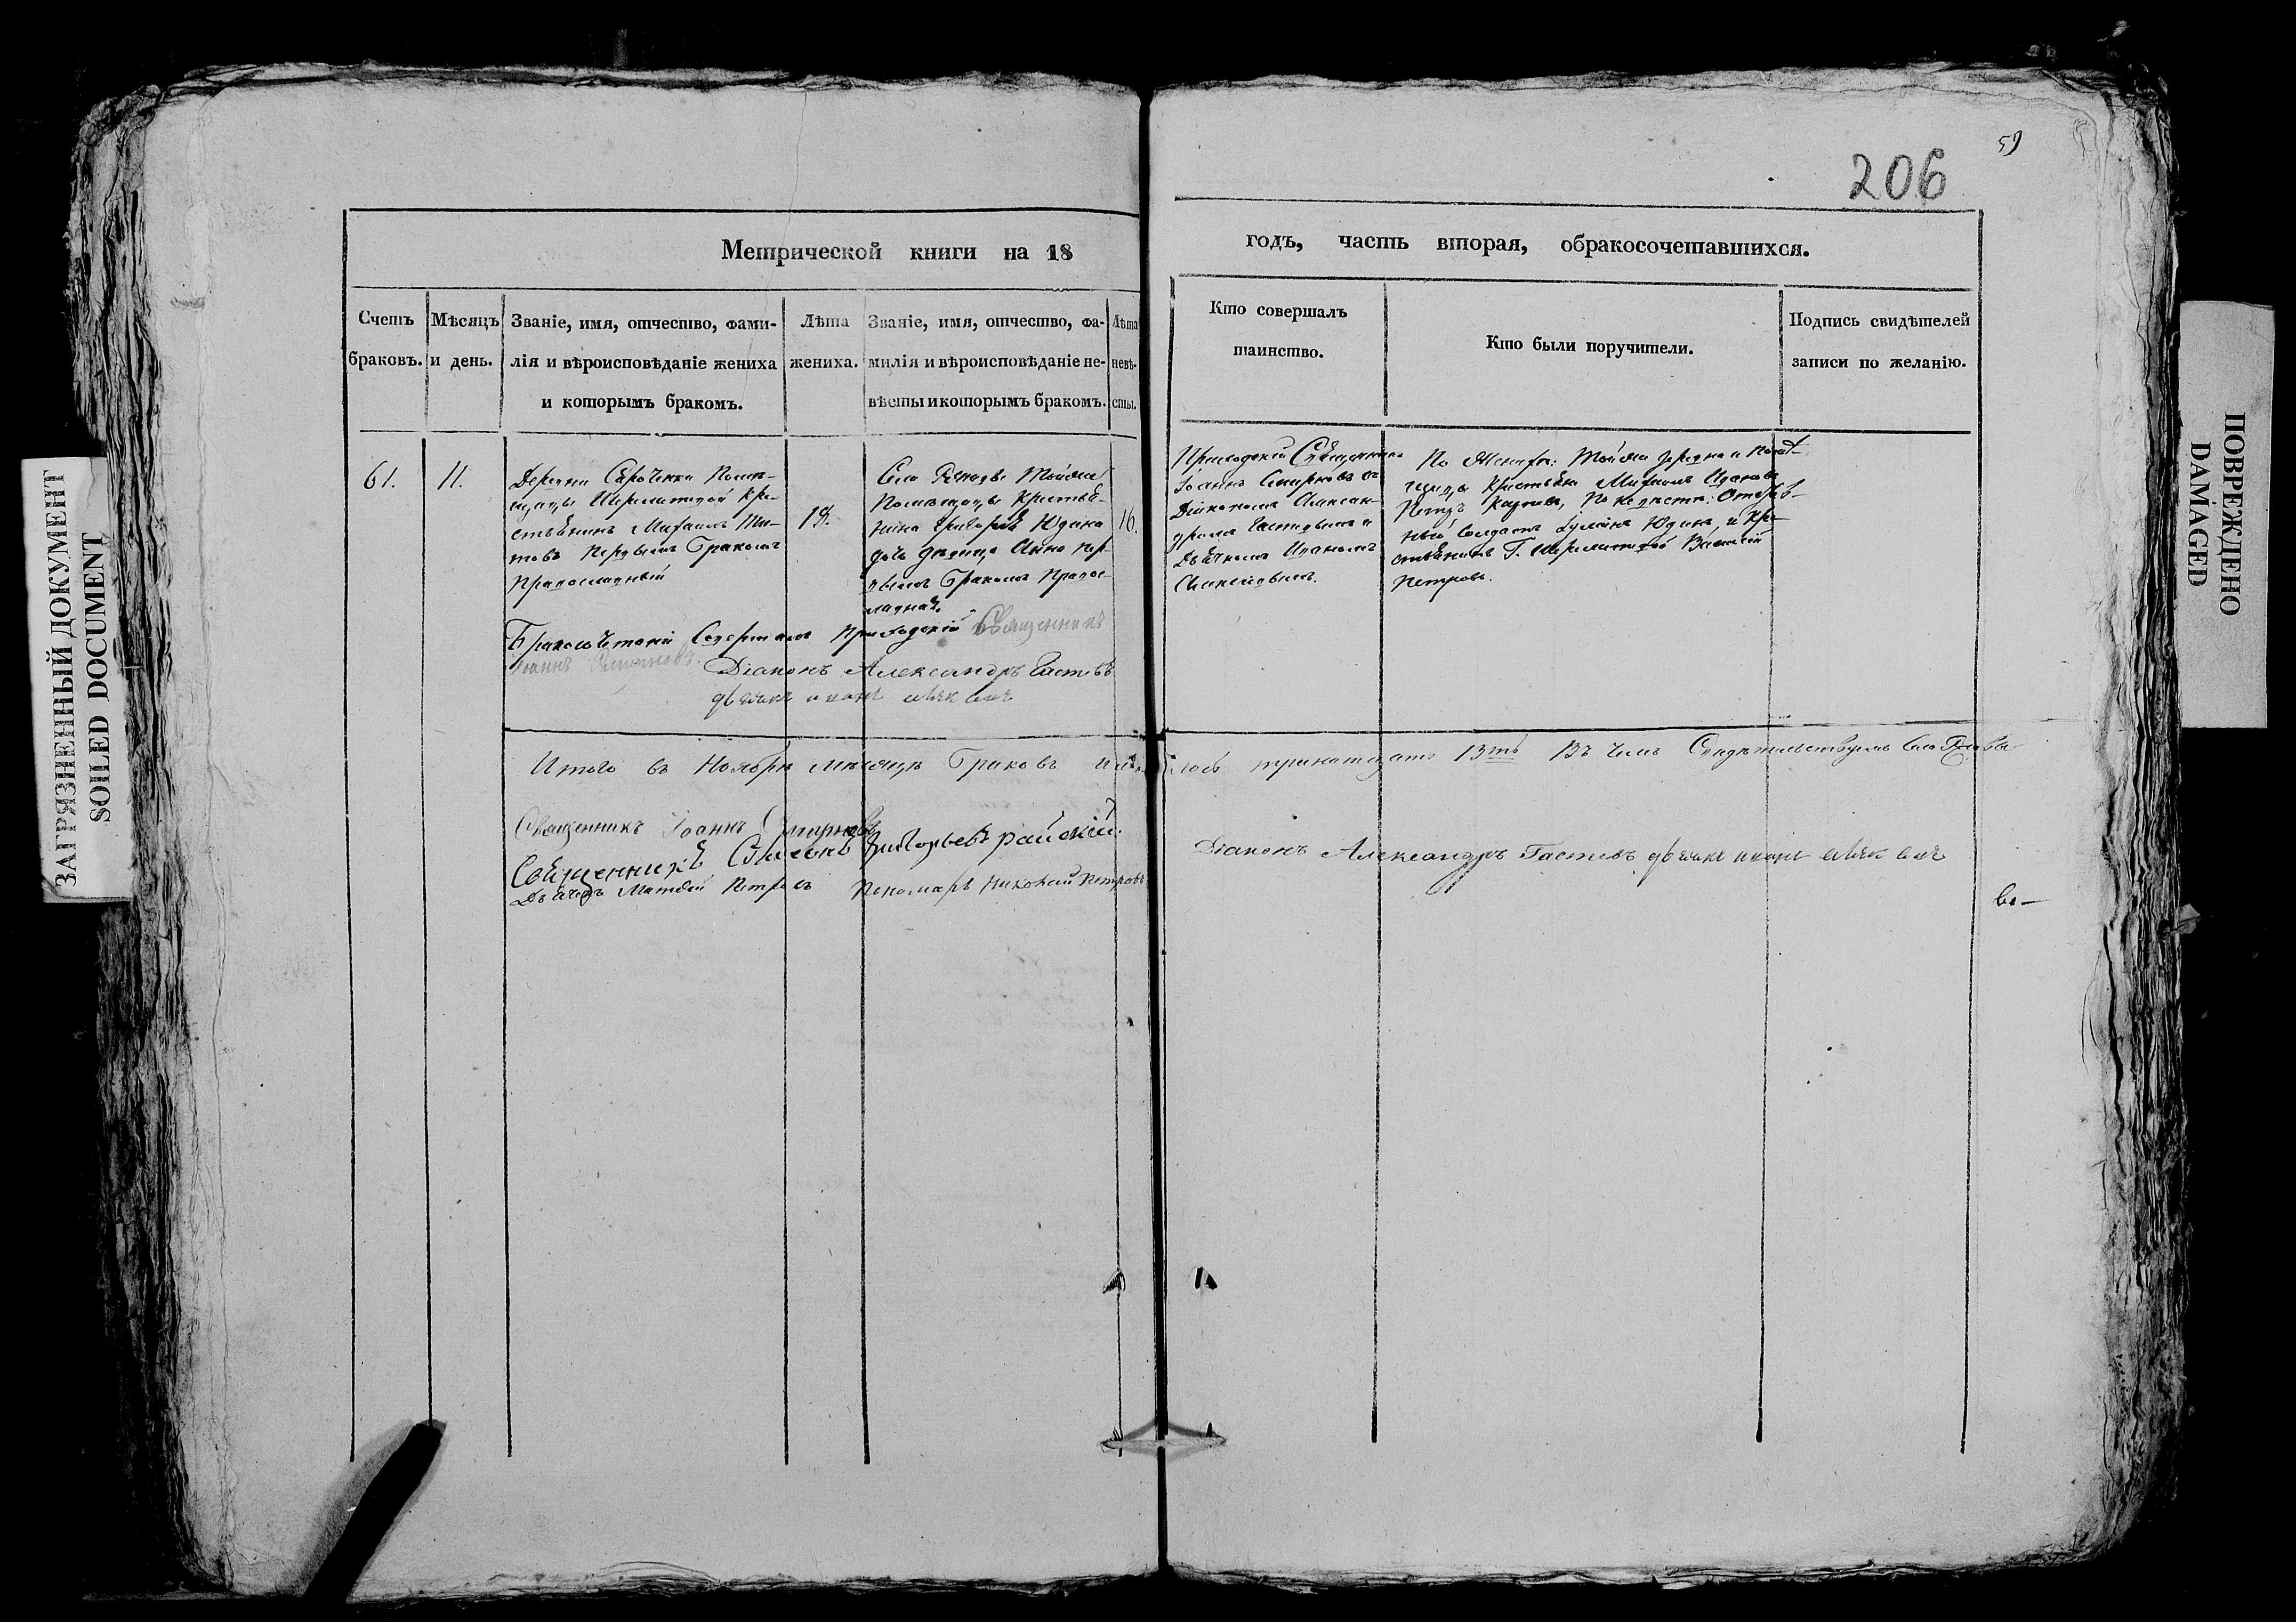 59
206
Метрической книги на 18
годъ, часть вторая, обракосочетавшихся.
Счетъ браковъ.
Мѣсяцъ и день.
Званіе, имя, отчество, фами-
лія и вѣроисповѣданіе жениха
и которымъ бракомъ.
Лѣта
жениха.
Званіе, имя, отчество, фа-
милія и вѣроисповѣданіе не-
вѣсты и которымъ бракомъ.
Лѣта
невѣ-
сты.
Кто совершалъ
таинство.
Кто были поручители.
Подпись свидѣтелей
записи по желанію.
61.
11.
Деревни Помѣ-
щицы Шереметевой кре-
стьянинъ Михаилъ Ти-
товъ первымъ бракомъ
православный
18.
Села тойже
Помѣщицы крестья-
нина Григорья Юдина
дочь девица Анна пер-
вымъ бракомъ право-
лавная.
16.
Приходской Священникъ
Іоаннъ Смирновъ съ
Діакономъ Алексан-
дромъ и
Дьячкомъ Иваномъ
Алексѣевымъ.
По женихѣ: тойже деревни и помѣ-
щицы крестьяне Михаилъ Ивановъ
Петръ по невѣстѣ: Отстав-
ной Солдатъ Юдинъ, и кре-
стьянинъ Г. Шереметевой Василій
Петровъ.
Бракосочетаніе Совершалъ приходской Священникъ
Іоаннъ Смирновъ.
Діаконъ Александръ
дьячекъ Иванъ
Итого въ Ноябрѣ мѣсяцѣ браковъ
тринатцать 13ть Въ чемъ Свидѣтельствуемъ
Священникъ Іоаннъ Смирновъ
Священникъ Симеонъ Григорьевъ райскій
Дьячекъ Матвей Петровъ Пономарь Николай Петровъ
Діаконъ Александръ дьячекъ Иванъ
ЗАГРЯЗНЕННЫЙ ДОКУМЕНТ
SOILED DOCUMENT
ПОВРЕЖДЕНО
DAMAGED